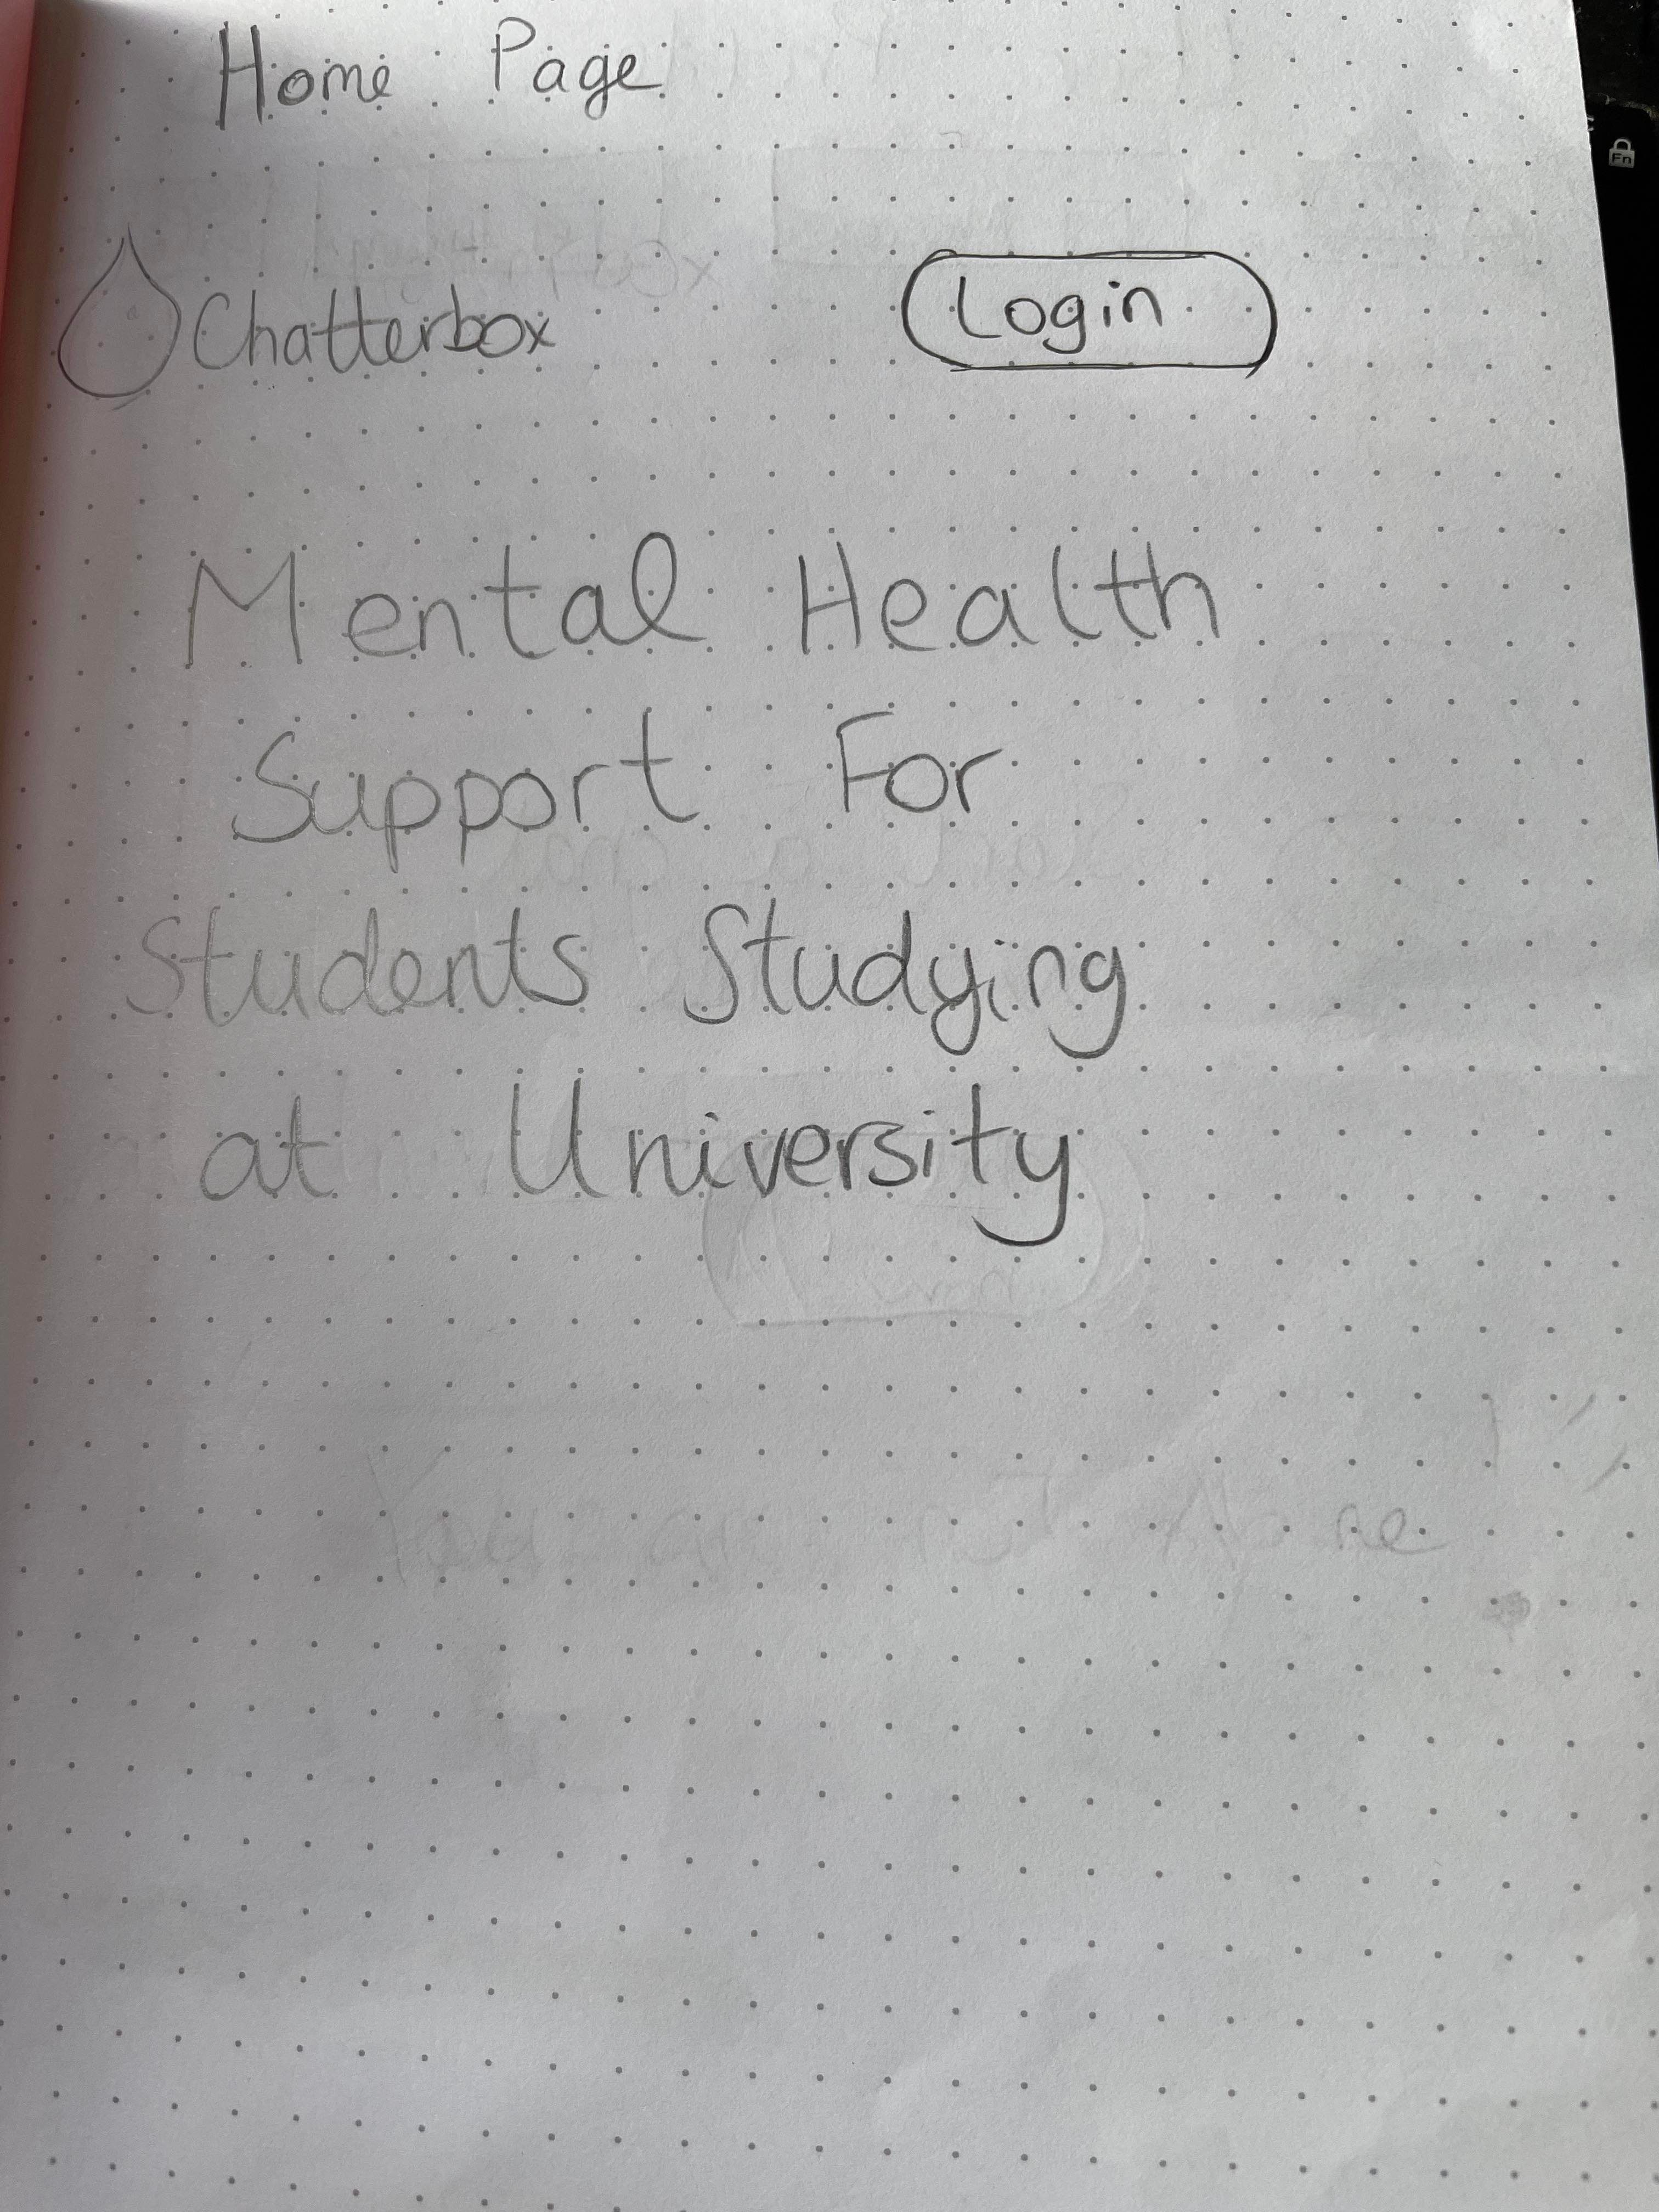 Home Page
Chatterbox
Login
Mental Health
Support For
Students Studying
at University
You are not Alone
Fn